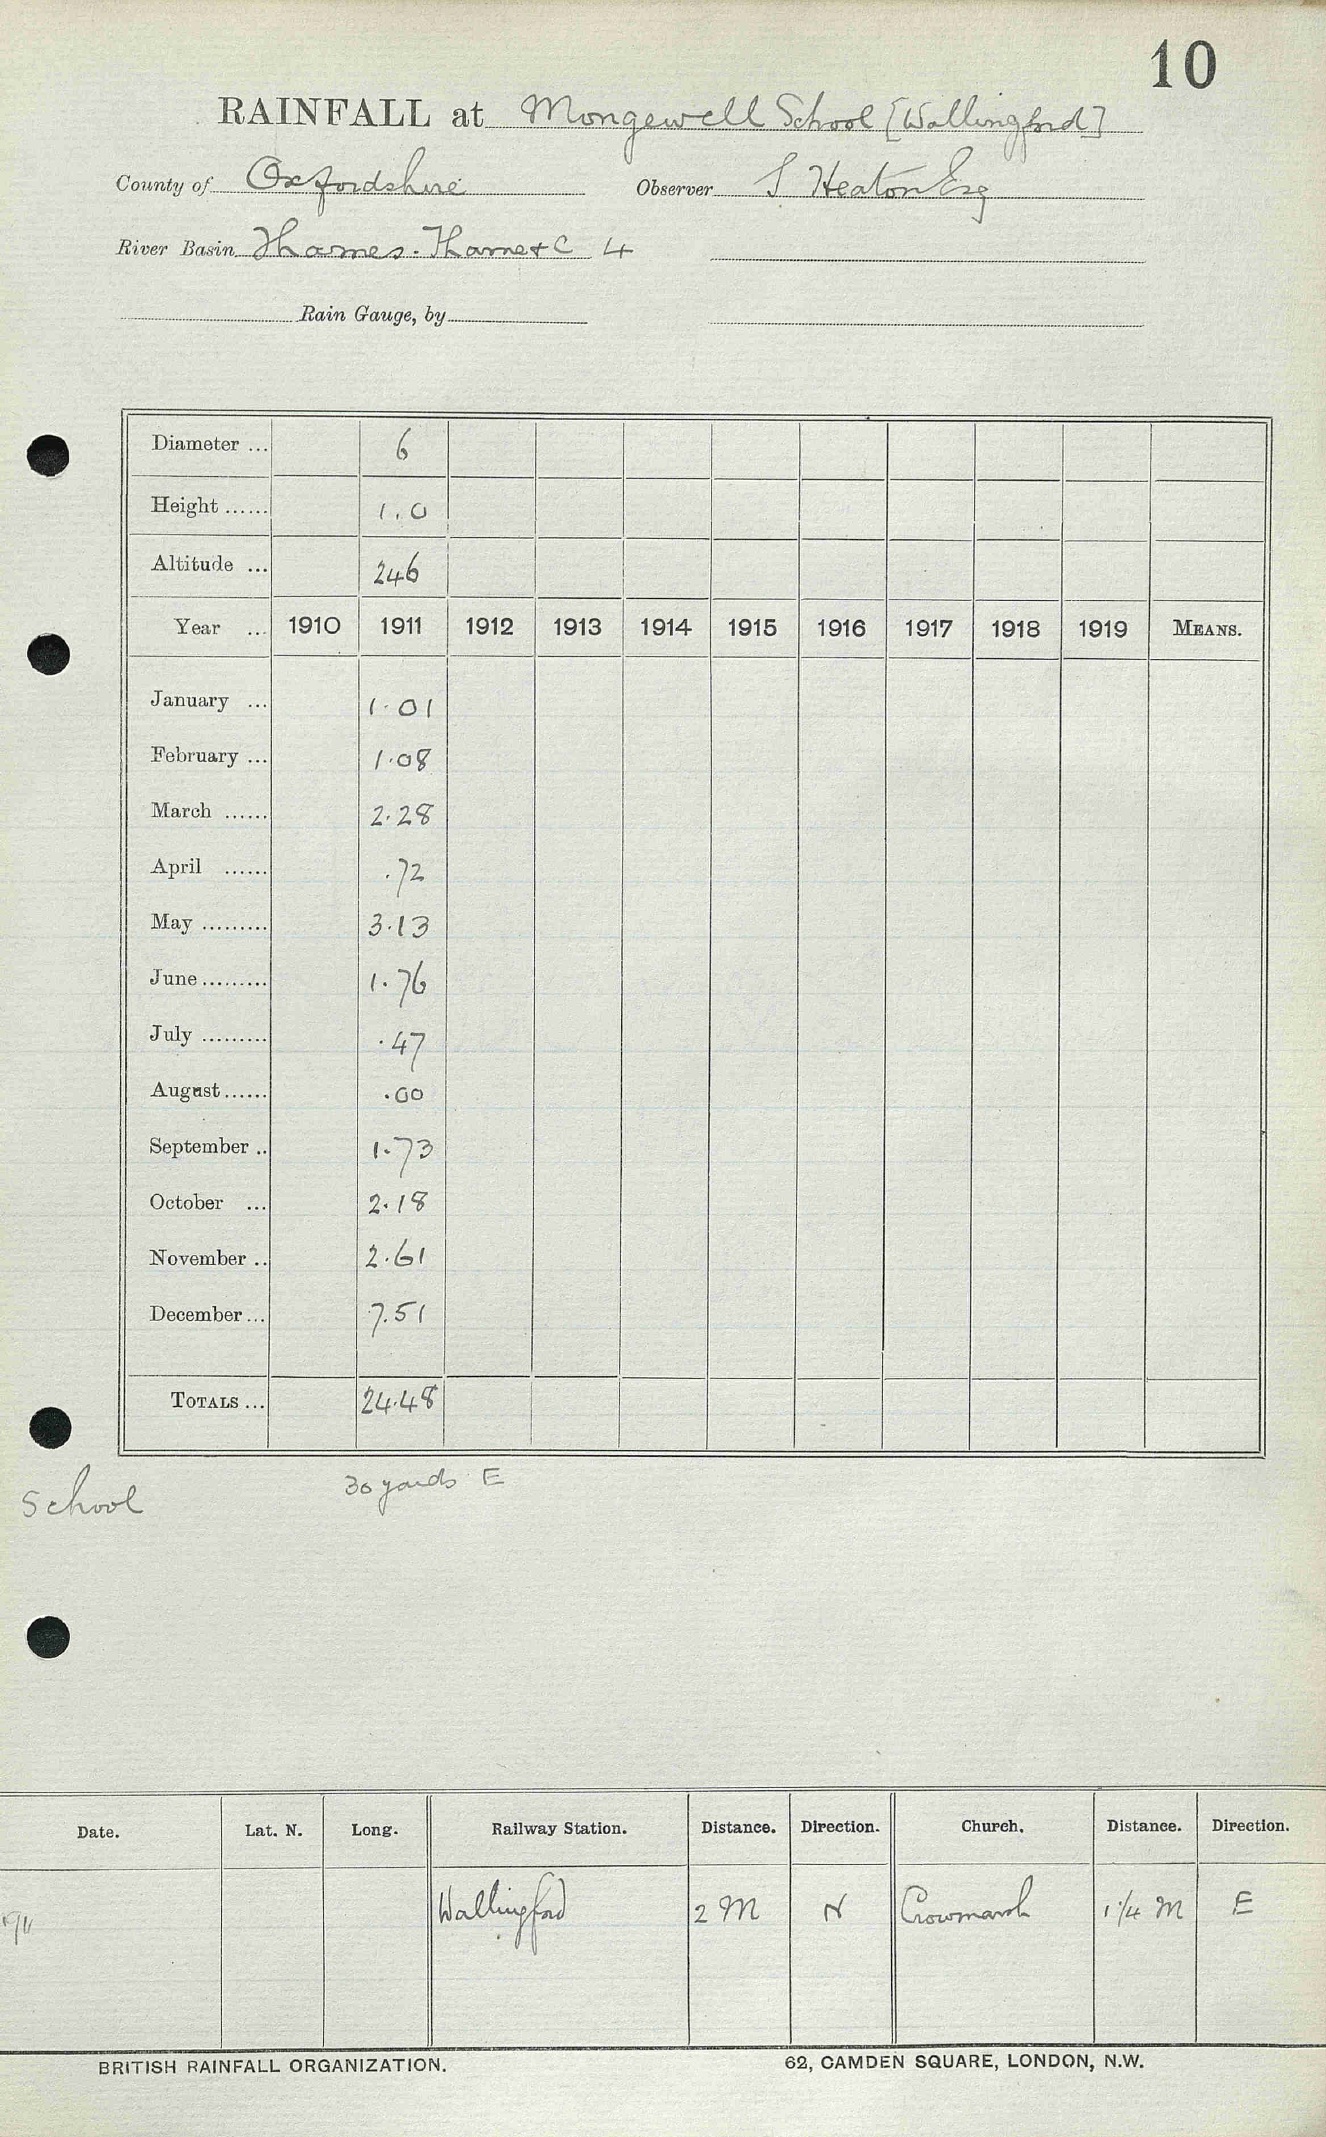 10
RAINFALL at Mongewell School [Wallingford]
County of Oxfordshire Observer S Heaton Esq
River Basin Thames. Thame & C 4
Rain Gauge, by
Diameter ... 6
Height ...... 1.0
Altitude ... 246
Year ... 1910 1911 1912 1913 1914 1915 1916 1917 1918 1919 MEANS.
January ... 1.01
February ... 1.08
March ...... 2.28
April ...... .72
May ......... 3.13
June ......... 1.76
July ......... .47
August ...... .00
September .. 1.73
October ... 2.18
November .. 2.61
December ... 7.51
TOTALS ... 24.48
School 30 yards E
Date. Lat. N. Long. Railway Station. Distance. Direction. Church. Distance. Direction.
1911 Wallingford 2 M N Crowmarsh 1 1/4 M E
BRITISH RAINFALL ORGANIZATION. 62, CAMDEN SQUARE, LONDON, N.W.